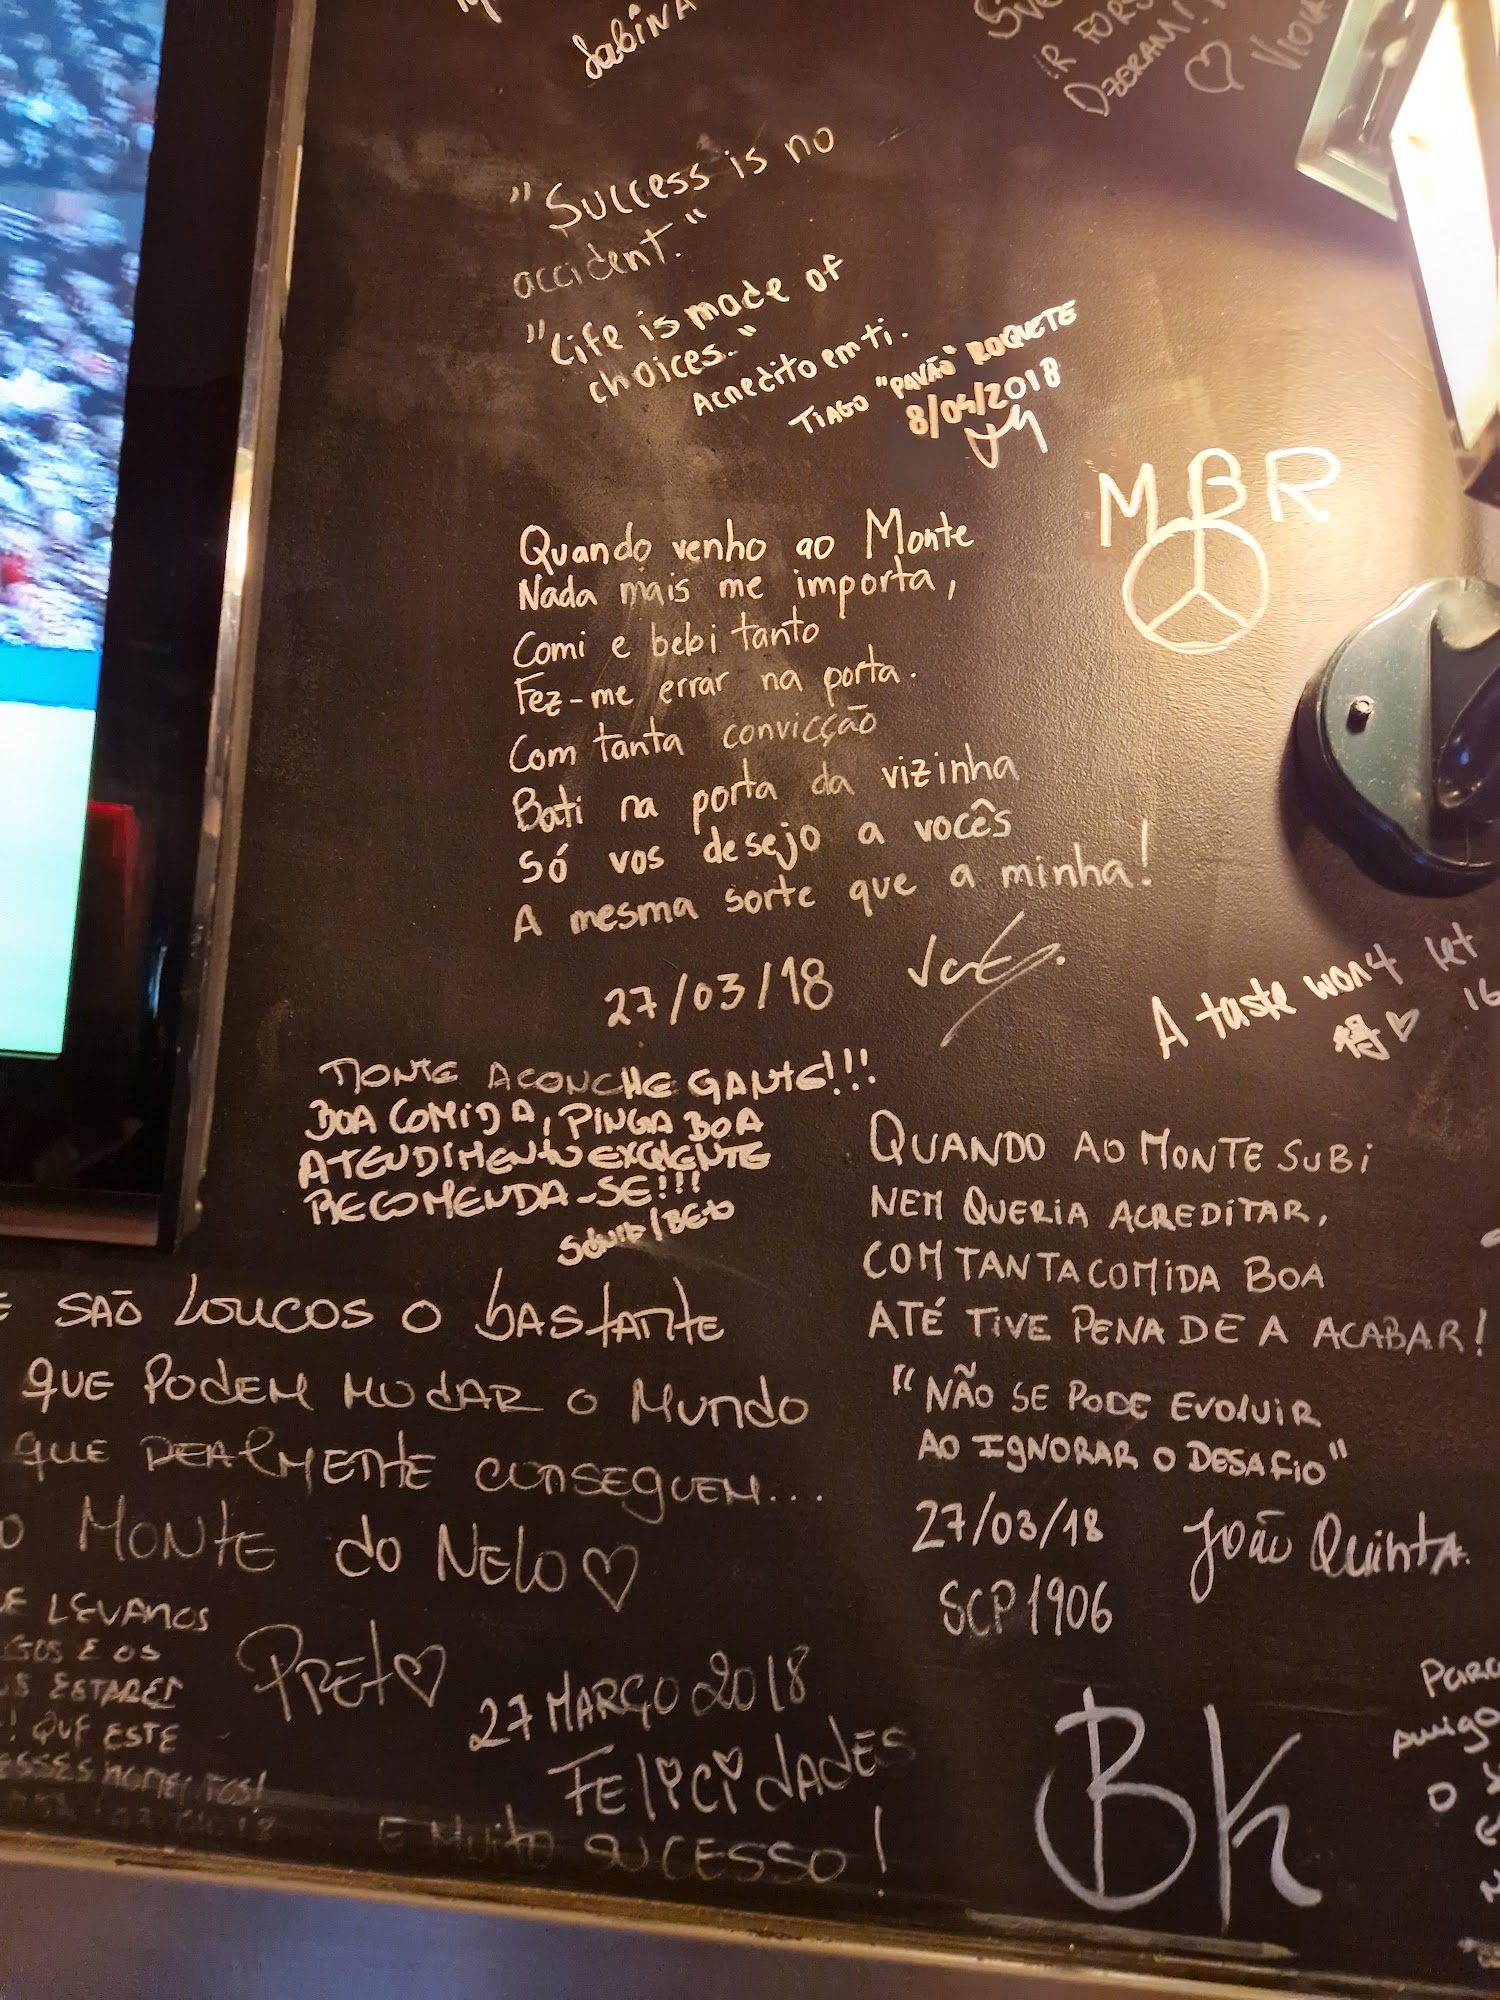 SabiNA
"Success is no
accident."
"Life is made of
choices."
Acredito em ti.
TIAGO "PAVÃO" ROQUETE
8/04/2018
MBR
Quando venho ao Monte
Nada mais me importa,
Comi e bebi tanto
Fez-me errar na porta.
Com tanta convicção
Bati na porta da vizinha
Só vos desejo a vocês
A mesma sorte que a minha!
27/03/18
A taste won't let
得♡ 16
MONTE ACONCHEGANTE!!!
BOA COMIDA, PINGA BOA
ATENDIMENTO EXCELENTE
RECOMENDA-SE!!!
QUANDO AO MONTE SUBi
NEM QUERIA ACREDITAR,
COM TANTA COMiDA BOA
ATÉ TiVE PENA DE A ACABAR!
"NÃO SE PODE EVOluiR
AO IGNORAR O DESAFiO"
27/03/18 João Quinta
SCP 1906
E SÃO Loucos o bastante
que PodEM MudAR o Mundo
que REAlMENte conseguem...
O MONtE do Nelo♡
E LEVAMOS
GOS E OS
ESTAREI
! QUE ESTE
ESSES MOMENTOS!
PRETO♡
27 MARÇO 2018
FEliCidAdES
E Muito SUCESSO!
BK
Amigo
O